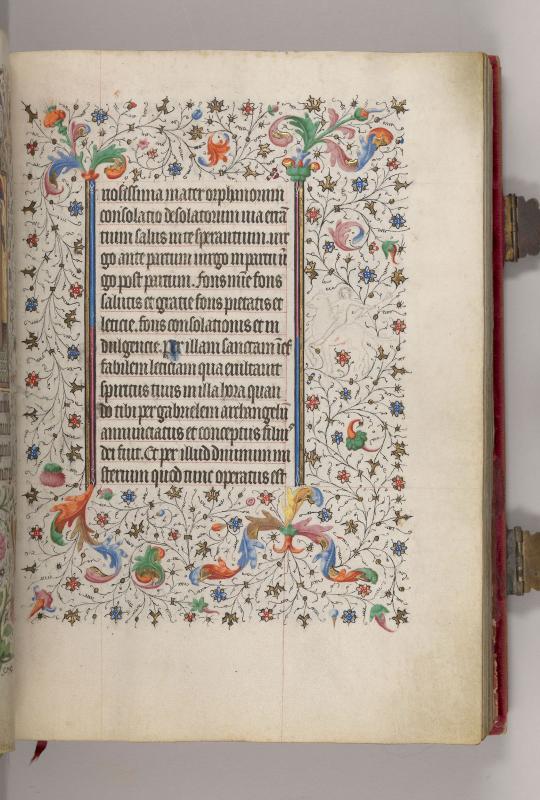 uosissima mater orphanorum
consolatio desolatorum uia errā
tium salus in te sperantium uir
go ante partum uirgo in partu ū
go post partum. Fons mīe fons
salutis et gratie fons pietatis et
leticie. fons consolationis et in
dulgencie. Per illam sanctam īef
fabilem leticiam qua exultauit
spiritus tuus in illa hora quan
do tibi per gabrielem archangelū
annunciatus et conceptus filius
dei fuit. Et per illud diuinum mi
sterium quod tunc operatus est